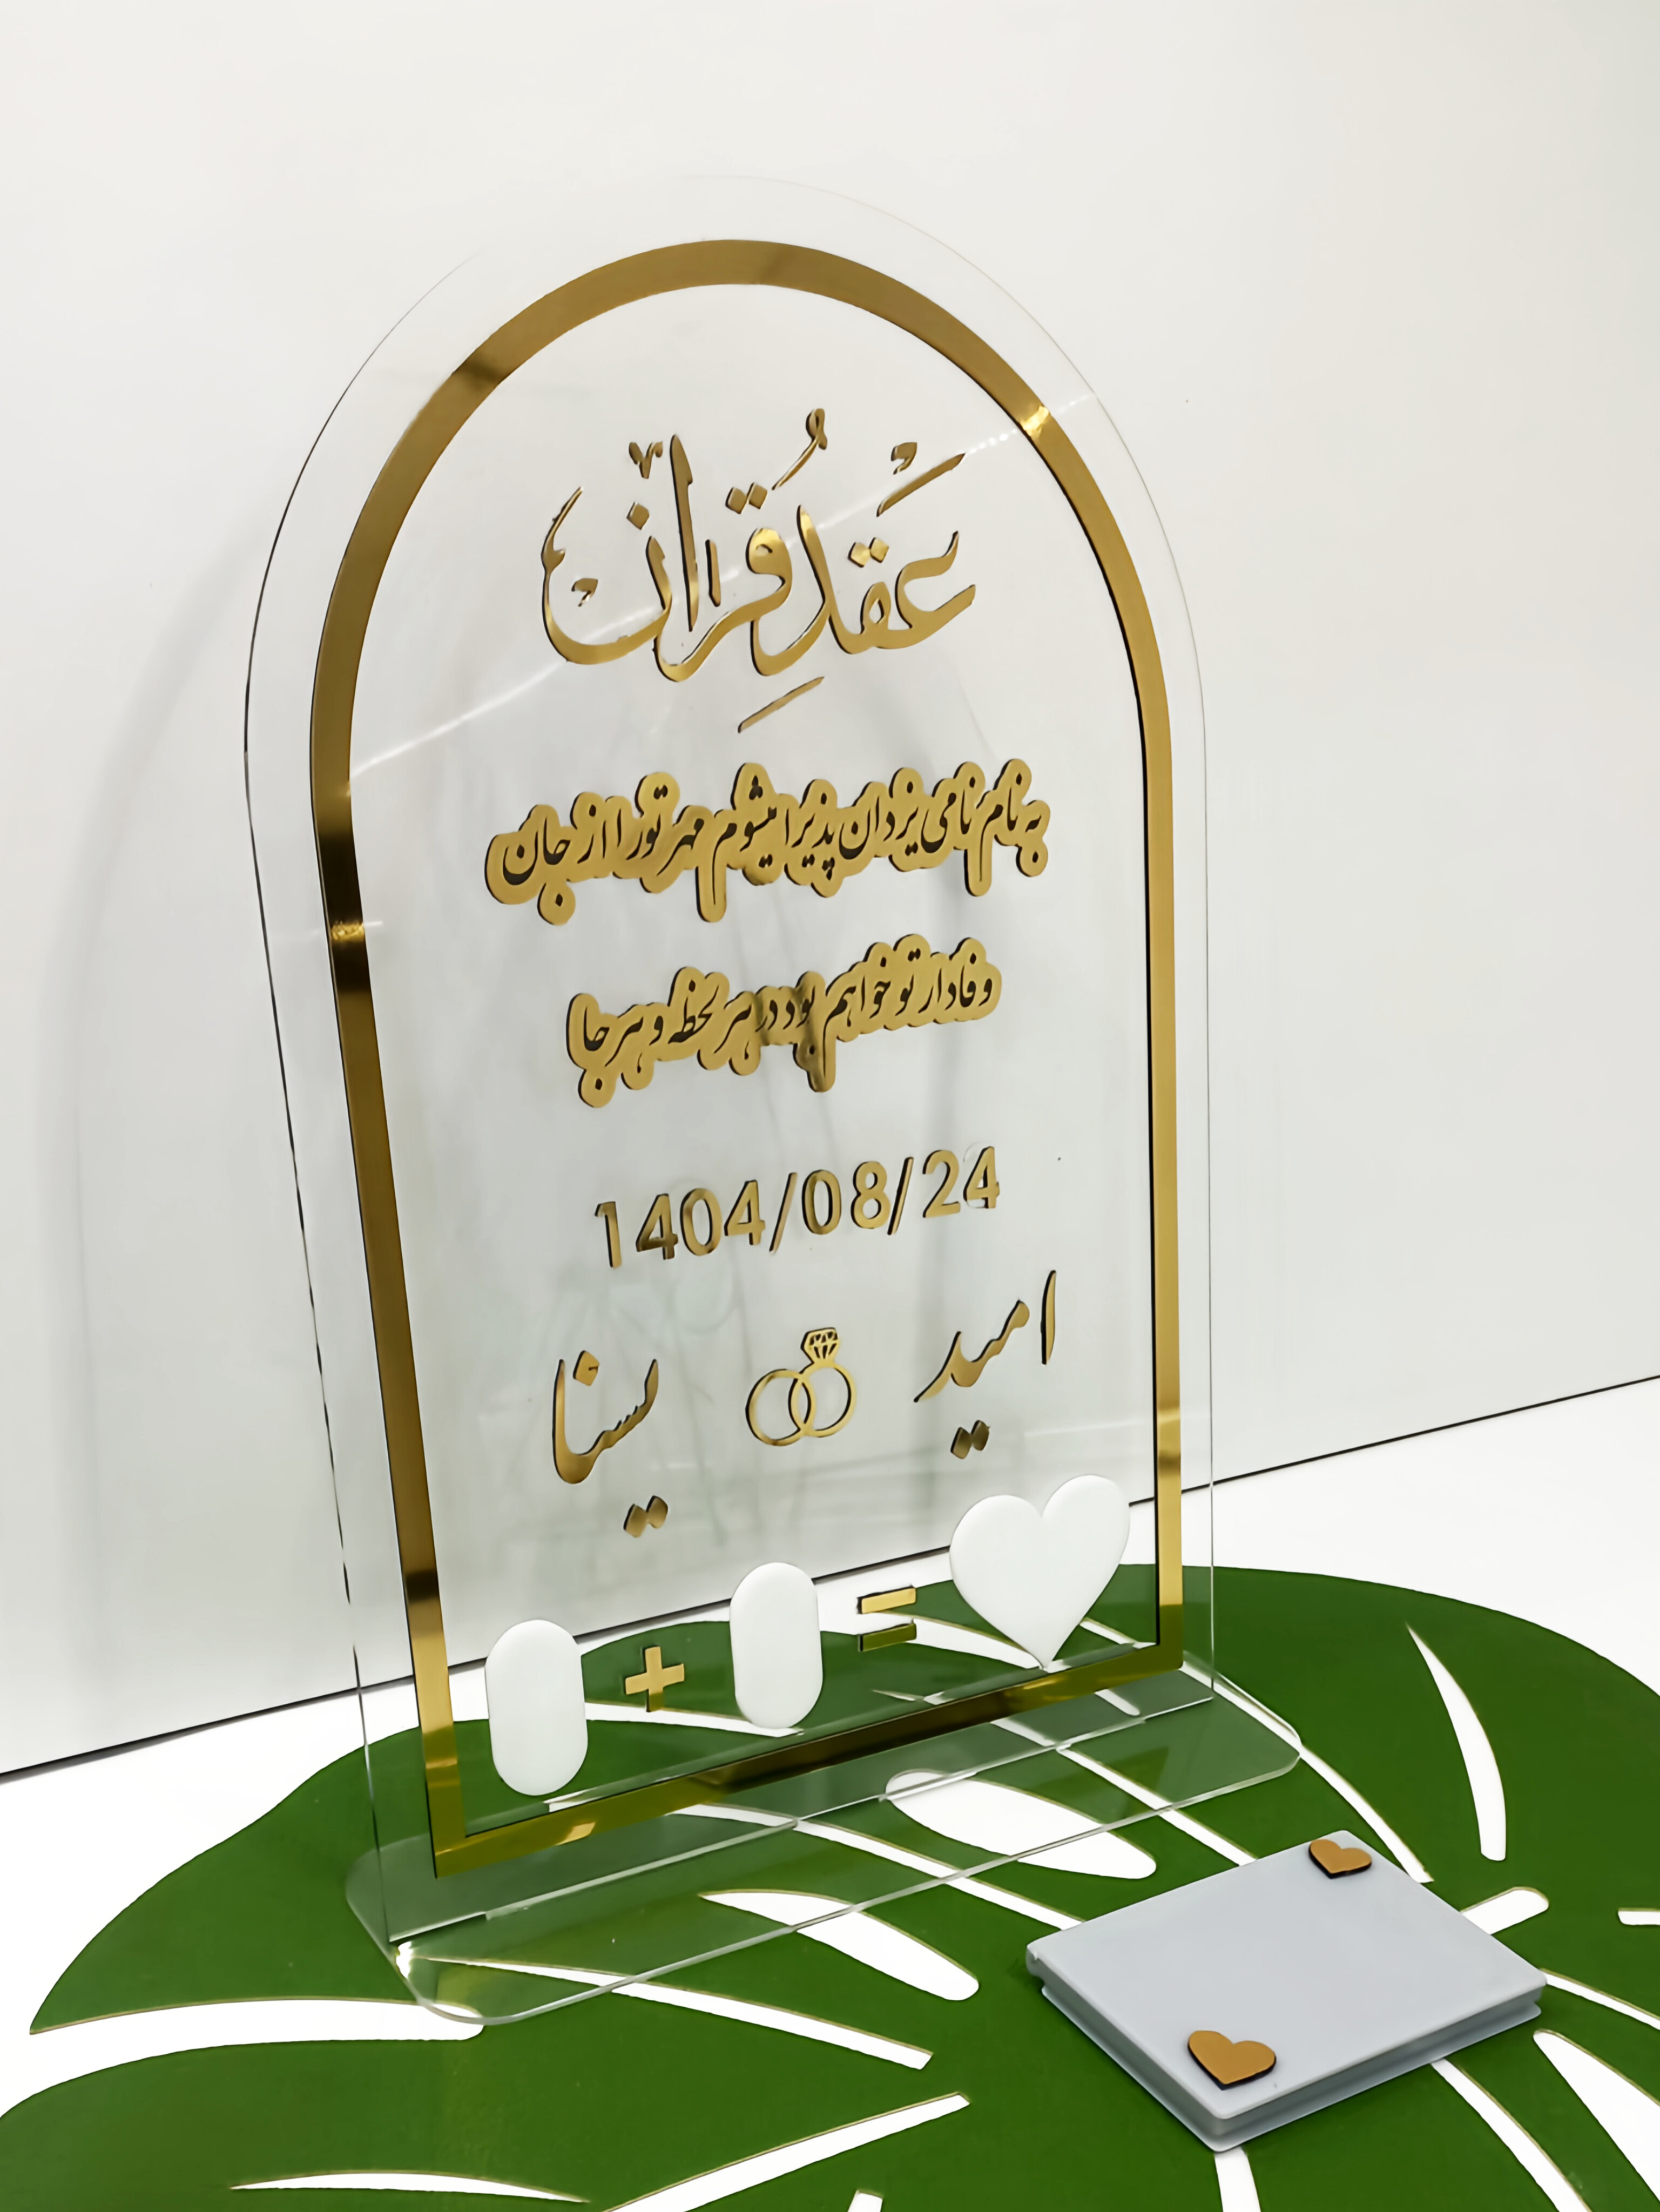 عَقْدِ قُرآنْ
به نام نامی یزدان پذیرا میشوم مهر تو را از جان
وفادار تو خواهم بود در هر لحظه و هر جا
1404/08/24
امید یسنا
+ =